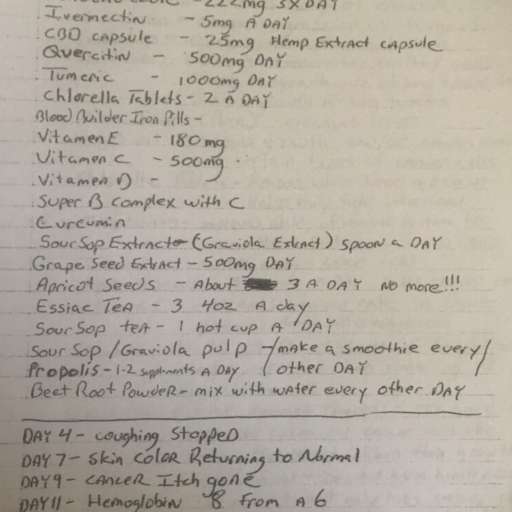 - 222mg 3x DAY
. Ivermectin - 5mg A DAY
. CBD CAPSULE - 25mg Hemp Extract CAPSULE
. Quercitin - 500mg DAY
. Tumeric - 1000mg DAY
. Chlorella Tablets - 2 A DAY
. Blood Builder Iron Pills -
. Vitamen E - 180mg
. Vitamen C - 500mg
. Vitamen D -
. Super B complex with C
. Curcumin
. Sour Sop Extract - (Graviola Extract) spoon a DAY
. Grape Seed Extract - 500mg DAY
. Apricot Seeds - About 3 A DAY no more!!!
. Essiac Tea - 3 4oz A day
. Sour Sop tea - 1 hot cup A DAY
. Sour Sop / Graviola pulp - / make a smoothie every /
. Propolis - 1-2 suppliments A DAY / other DAY
. Beet Root Powder - mix with water every other DAY
DAY 4 - coughing stopped
DAY 7 - Skin Color Returning to Normal
DAY 9 - CANCER Itch gone
DAY 11 - Hemoglobin 8 from A 6